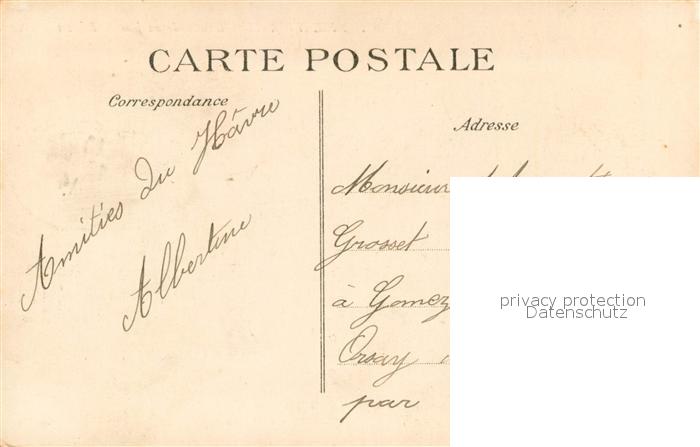 CARTE POSTALE
Correspondance
Amitiés du Hâvre
Albertine
Adresse
Monsieur
Grosset
à Gomez
Orsay
par
privacy protection
Datenschutz